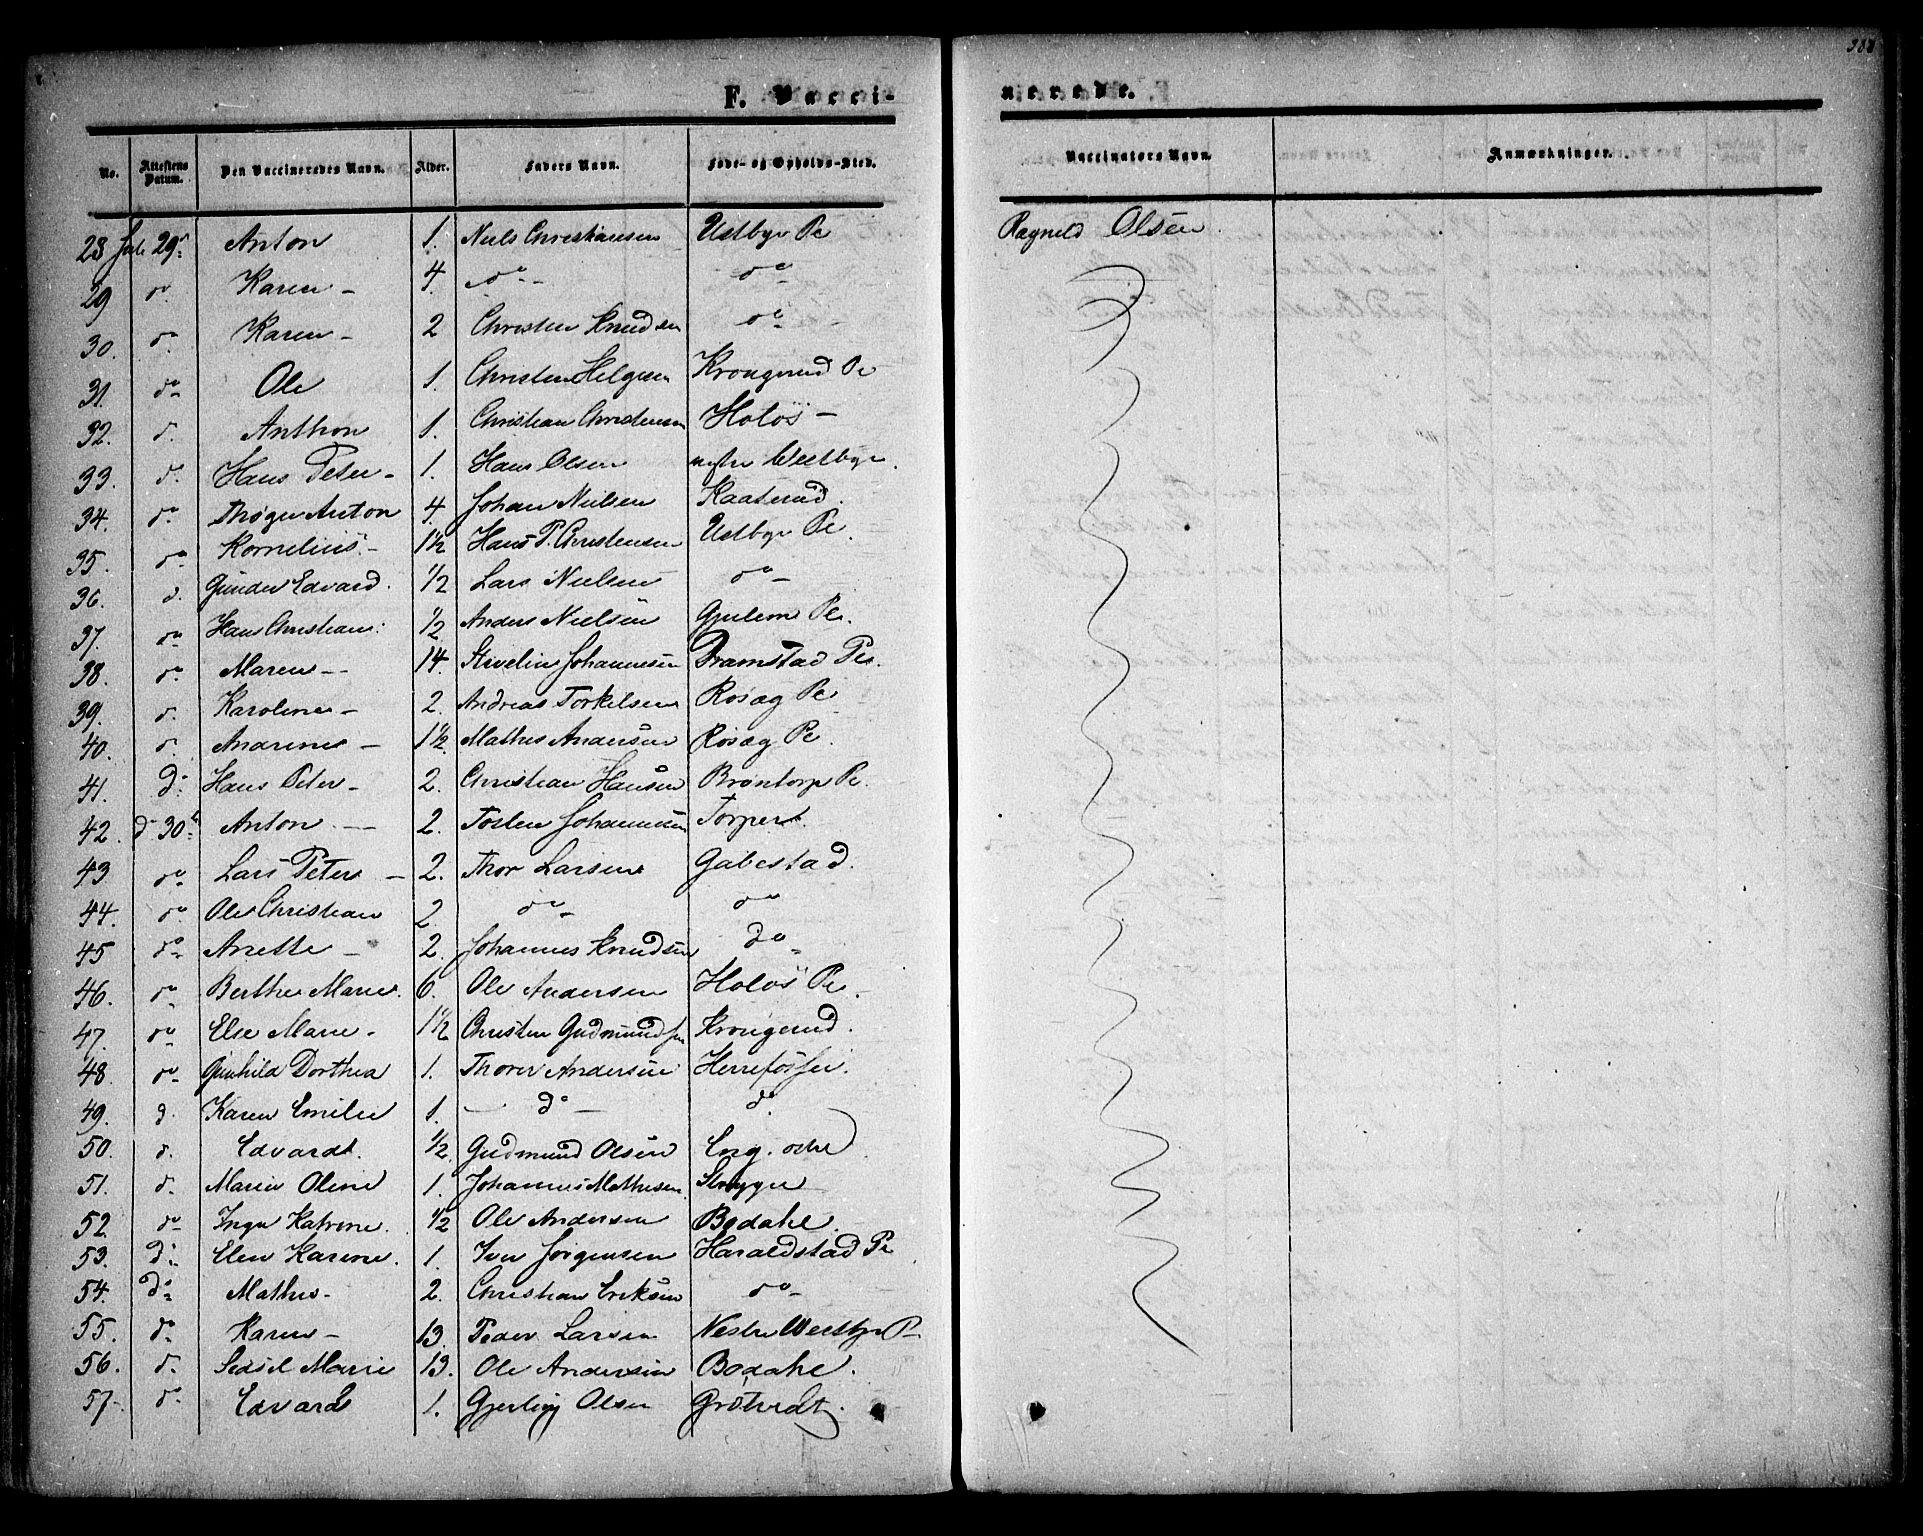 F. Vacci-
nerede.
No. Attestens Datum. Den Vaccineredes Navn. Alder. Faders Navn. Føde- og Opholds-Sted.
Vaccinators Navn. Anmærkninger.
28 Juli 29 Anton 1. Niels Christiansen Ustbye Pe Ragnild Olsen
29 do Karen - 4. do - do
30. do Karen - 2 Christen Knudsen do -
31. do Ole 1. Christen Helgesen Krongerud Pe
32. d. Anthon 1. Christian Christensen Holøs -
33. d. Hans Peter - 1. Hans Olsen Westbye
34. do Anton 4. Johan Nielsen Kaaterud.
35. do Kornelius - 1½ Hans P. Christensen Ustbye Pe.
36. d. Gunder Edvard. ½ Lars Nielsen do -
37. do Hans Christian. ½ Anders Nielsen Gjulem Pe.
38. do Maren - 14. Johannesen Dramstad Pe.
39. d. Karoline - 2. Andreas Torkelsen Rosæg Pe
40. d. Andrine - 1½ Mathis Andersen Rosæg Pe.
41. do Hans Peter - 2. Christian Hansen Brontorp Pe.
42. d 30 Anton - 2. Johannesen Torper.
43 do Lars Peter - 2. Thor Larsen Gabestad.
44. do Ole Christian 2. do do
45 do Anette - 2. Johannes Knudsen do
46. do Berthe Marie. 6. Ole Andersen Holøs Pe.
47. do Else Marie - 1½ Christen Gudmundsen Krongerud.
48 do Gunhild Dorthea 1. Thorer Andersen Herrefosser.
49. d. Karen Emilie 1. - do - d.
50. d. Edvardt. ½ Gudmund Olsen Eng.
51. d. Maren Oline 1. Johannes Mathesen.
52. do Inger Katrine. ½ Ole Andersen Bodahl.
53. d. Elen Karine. 1. Iver Jørgensen Haraldstad Pe
54. do Mathis - 2. Christian Eriksen do -
55. do Karen - 13 Peder Larsen Nestre Westbye P
56. d. Sedsel Marie 13. Ole Andersen Bodahl.
57. do Edvard 1. Olsen Grøtvedt.